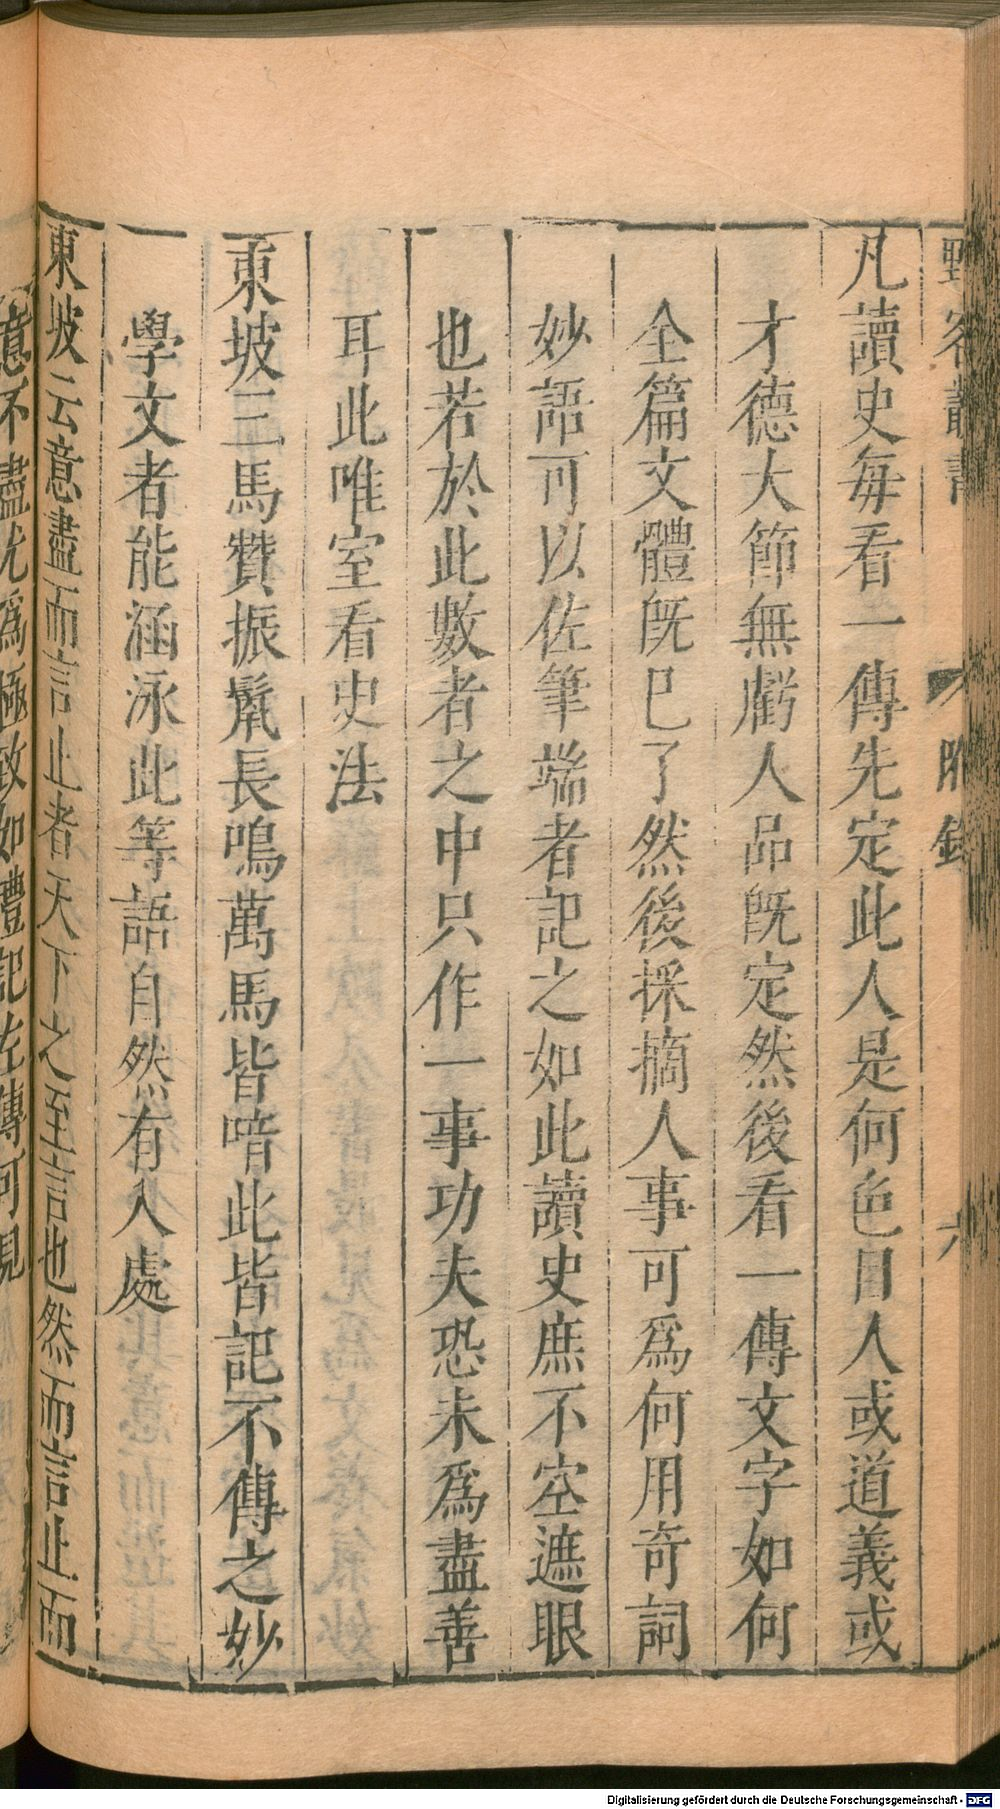 野客叢書 附錄 六
凡讀史每看一傳先定此人是何色目人或道義或
才德大節無虧人品旣定然後看一傳文字如何
全篇文體旣已了然後採摘人事可爲何用奇詞
妙語可以佐筆端者記之如此讀史庶不空遮眼
也若於此數者之中只作一事功夫恐未爲盡善
耳此唯室看史法
東坡三馬贊振鬣長鳴萬馬皆喑此皆記不傳之妙
學文者能涵泳此等語自然有入處
東坡云意盡而言止者天下之至言也然而言止而
意不盡尤爲極致如禮記左傳可見
Digitalisierung gefördert durch die Deutsche Forschungsgemeinschaft - DFG